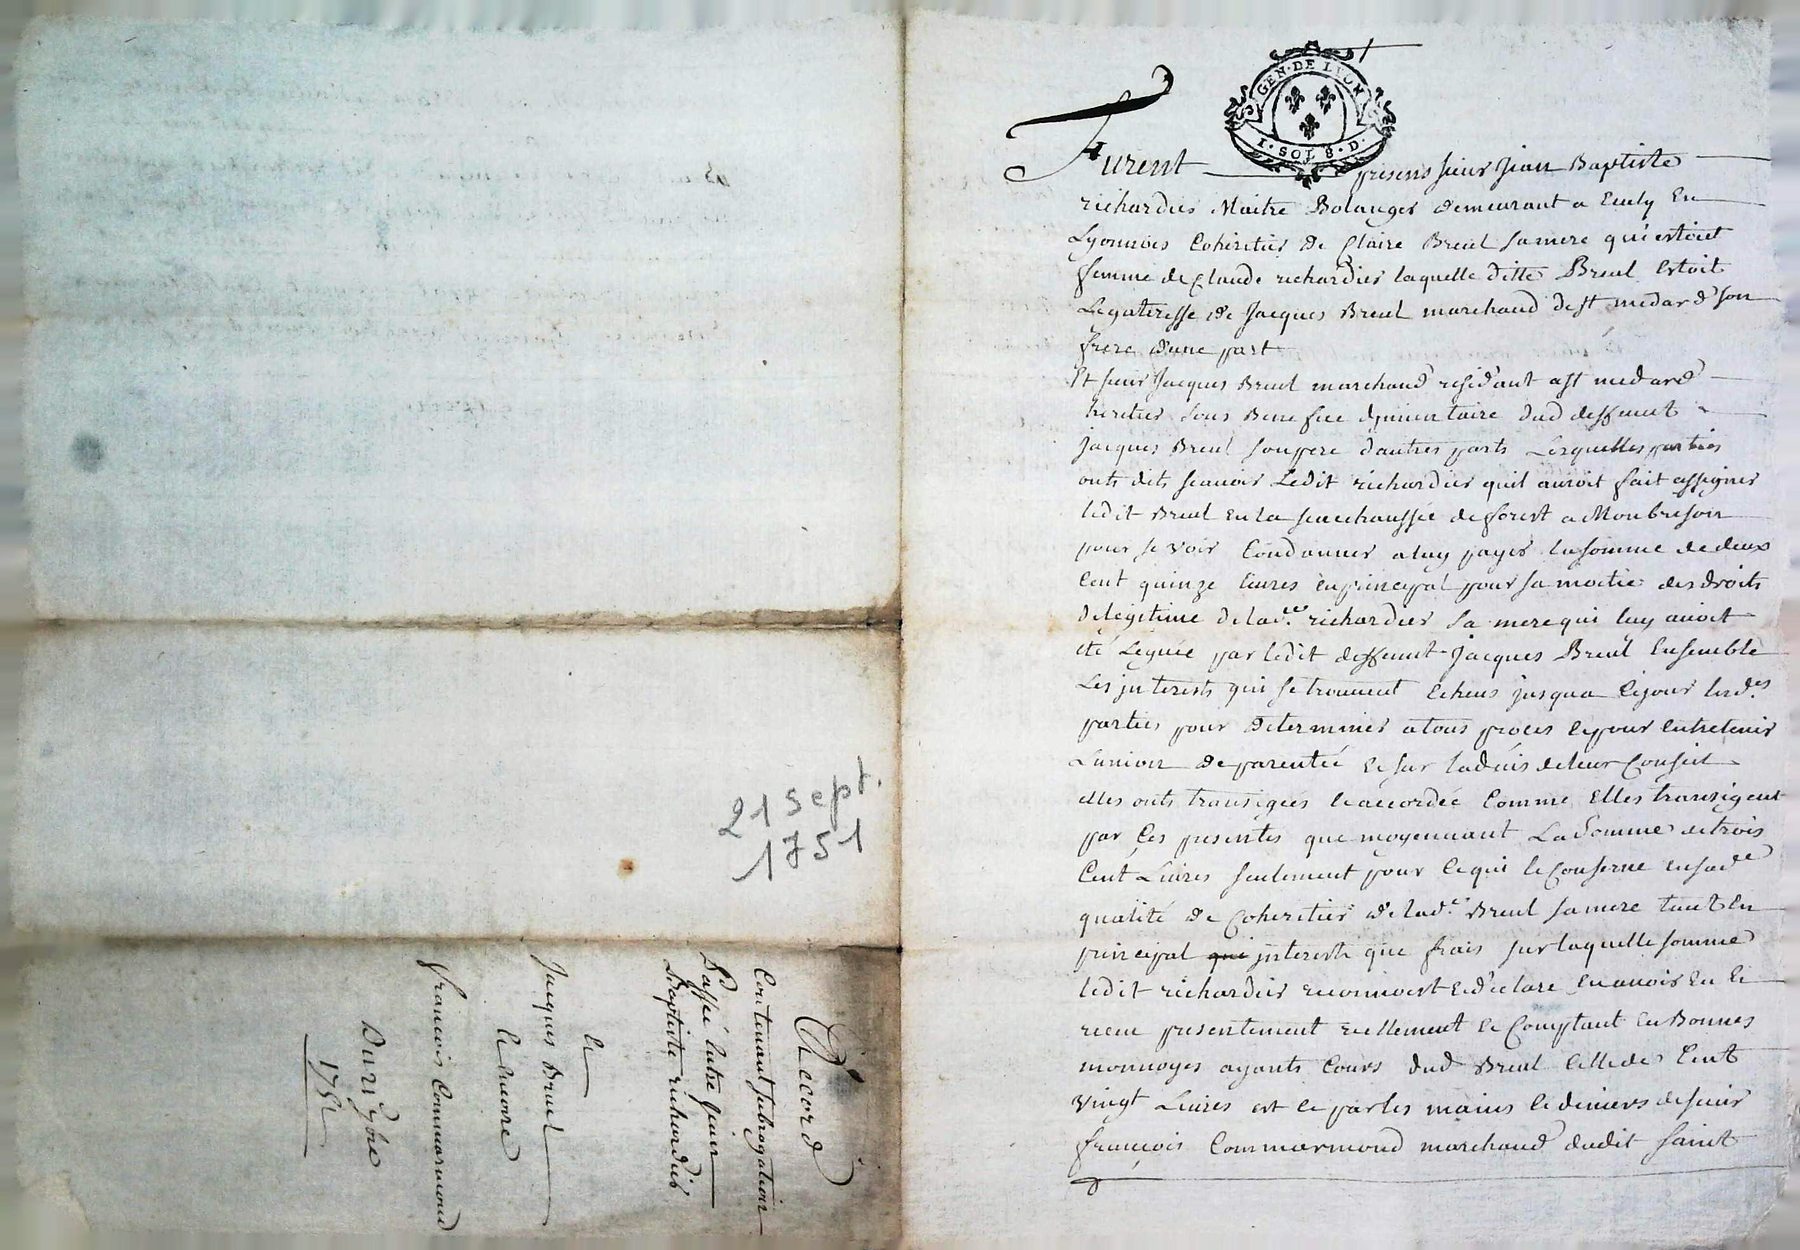 GEN · DE LYON
I · SOL 8 · D ·
Furent presens sieur Jean Baptiste
richardies Maitre Bolanger demeurant a Eculy En
Lyonnois Coheritier de Claire Breul sa mere qui estoit
femme de Claude richardier laquelle ditte Breul Estoit
Legateresse de Jacques Breul marchand de st medard son
frere d'une part
Et sieur Jacques Breul marchand residant a st medard
heritier sous Benefice dinventaire dud deffunt
Jacques Breul son pere d'autres parts Lesquelles parties
onts dits scavoir Ledit richardier quil auroit fait assigner
ledit Breul En la senechaussée de forest a Monbrison
pour se voir Condanner a luy payer la somme de deux
Cent quinze livres en principal pour sa moitie des droits
de legitime de lad.ee richardier sa mere qui luy avoit
été Leguée par ledit deffunt Jacques Breul Ensemble
Les jnterests qui se trouvent Echeus jusqua Cejour lesd.es
parties pour determiner a tous proces Et pour entretenir
L'union de parentée Et sur Ladvis de leur Conseil
elles onts transigées Et accordée Comme Elles transigent
par Ces presentes que moyennant La Somme de trois
Cent Livres seulement pour Ce qui le Conserne en sad.e
qualité de Coheritier de lad.e Breul sa mere tant En
principal que jnterests que frais sur laquelle somme
ledit richardier reconnoist Et declare En avoir En Ci
receu presentement reellement Et Comptant En Bonnes
monnoyes ayants Cours dud Breul Celle de Cent
vingt Livres Et Ce par les mains Et deniers de sieur
françois Commarmond marchand dudit saint
21 sept.
1751
Accord
Contenant subrogation
Passé Entre sieur
Baptiste richardier
Et
Jacques Breul
Et Encore
francois Commarmond
Du 21 7bre
1751